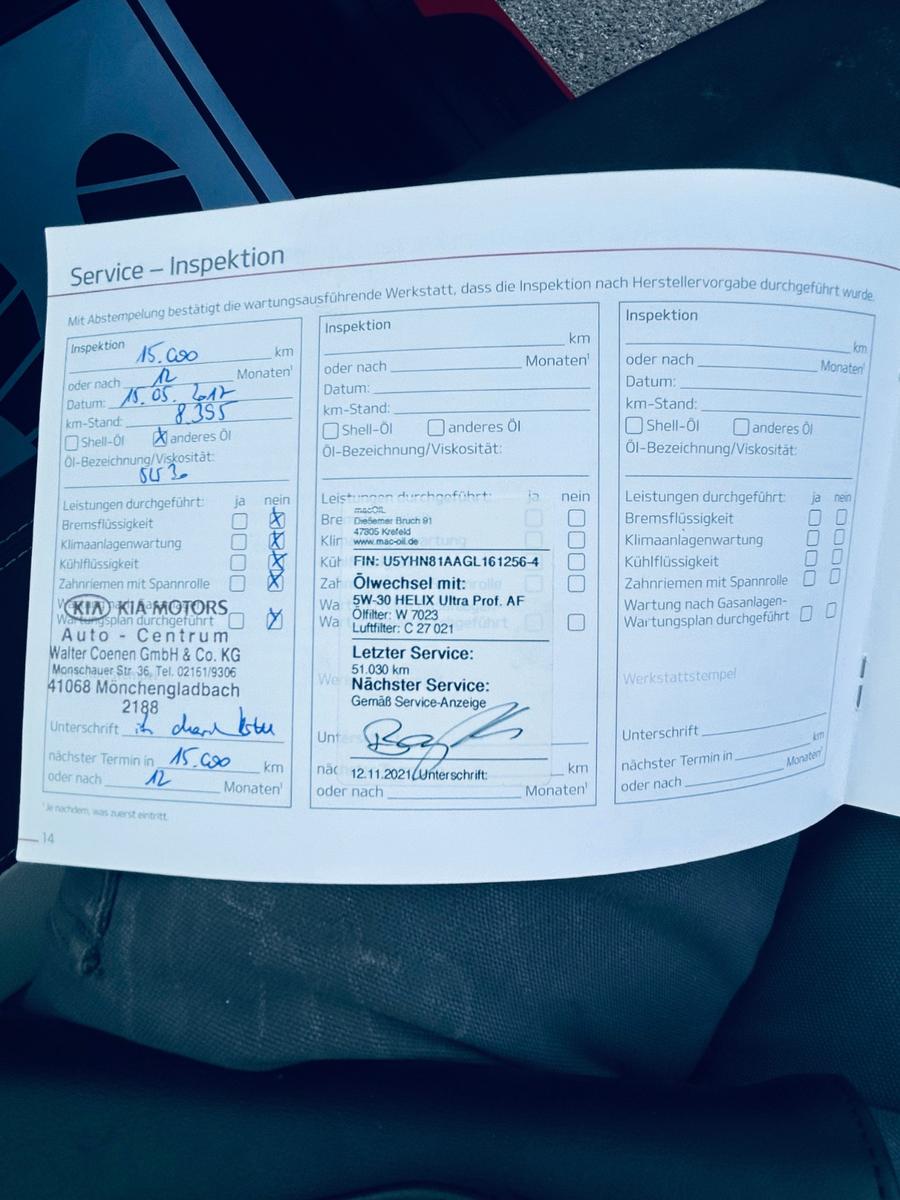 Service – Inspektion
Mit Abstempelung bestätigt die wartungsausführende Werkstatt, dass die Inspektion nach Herstellervorgabe durchgeführt wurde.
Inspektion 15.000 km
oder nach 12 Monaten¹
Datum: 15.05.2017
km-Stand: 8.395
Shell-Öl x anderes Öl
Öl-Bezeichnung/Viskosität:
5W30
Leistungen durchgeführt: ja nein
Bremsflüssigkeit x
Klimaanlagenwartung x
Kühlflüssigkeit x
Zahnriemen mit Spannrolle x
Wartungsplan durchgeführt x
KIA KIA MOTORS
Auto - Centrum
Walter Coenen GmbH & Co. KG
Monschauer Str. 36, Tel. 02161/9306
41068 Mönchengladbach
2188
Unterschrift
nächster Termin in 15.000 km
oder nach 12 Monaten¹
¹Je nachdem, was zuerst eintritt.
14
Inspektion
km
oder nach Monaten¹
Datum:
km-Stand:
Shell-Öl anderes Öl
Öl-Bezeichnung/Viskosität:
Leistungen durchgeführt: ja nein
macOIL
Dießemer Bruch 91
47805 Krefeld
www.mac-oil.de
FIN: U5YHN81AAGL161256-4
Ölwechsel mit:
5W-30 HELIX Ultra Prof. AF
Ölfilter: W 7023
Luftfilter: C 27 021
Letzter Service:
51.030 km
Nächster Service:
Gemäß Service-Anzeige
12.11.2021 Unterschrift:
km
oder nach Monaten¹
Inspektion
km
oder nach Monaten¹
Datum:
km-Stand:
Shell-Öl anderes Öl
Öl-Bezeichnung/Viskosität:
Leistungen durchgeführt: ja nein
Bremsflüssigkeit
Klimaanlagenwartung
Kühlflüssigkeit
Zahnriemen mit Spannrolle
Wartung nach Gasanlagen-
Wartungsplan durchgeführt
Werkstattstempel
Unterschrift
nächster Termin in km
oder nach Monaten¹